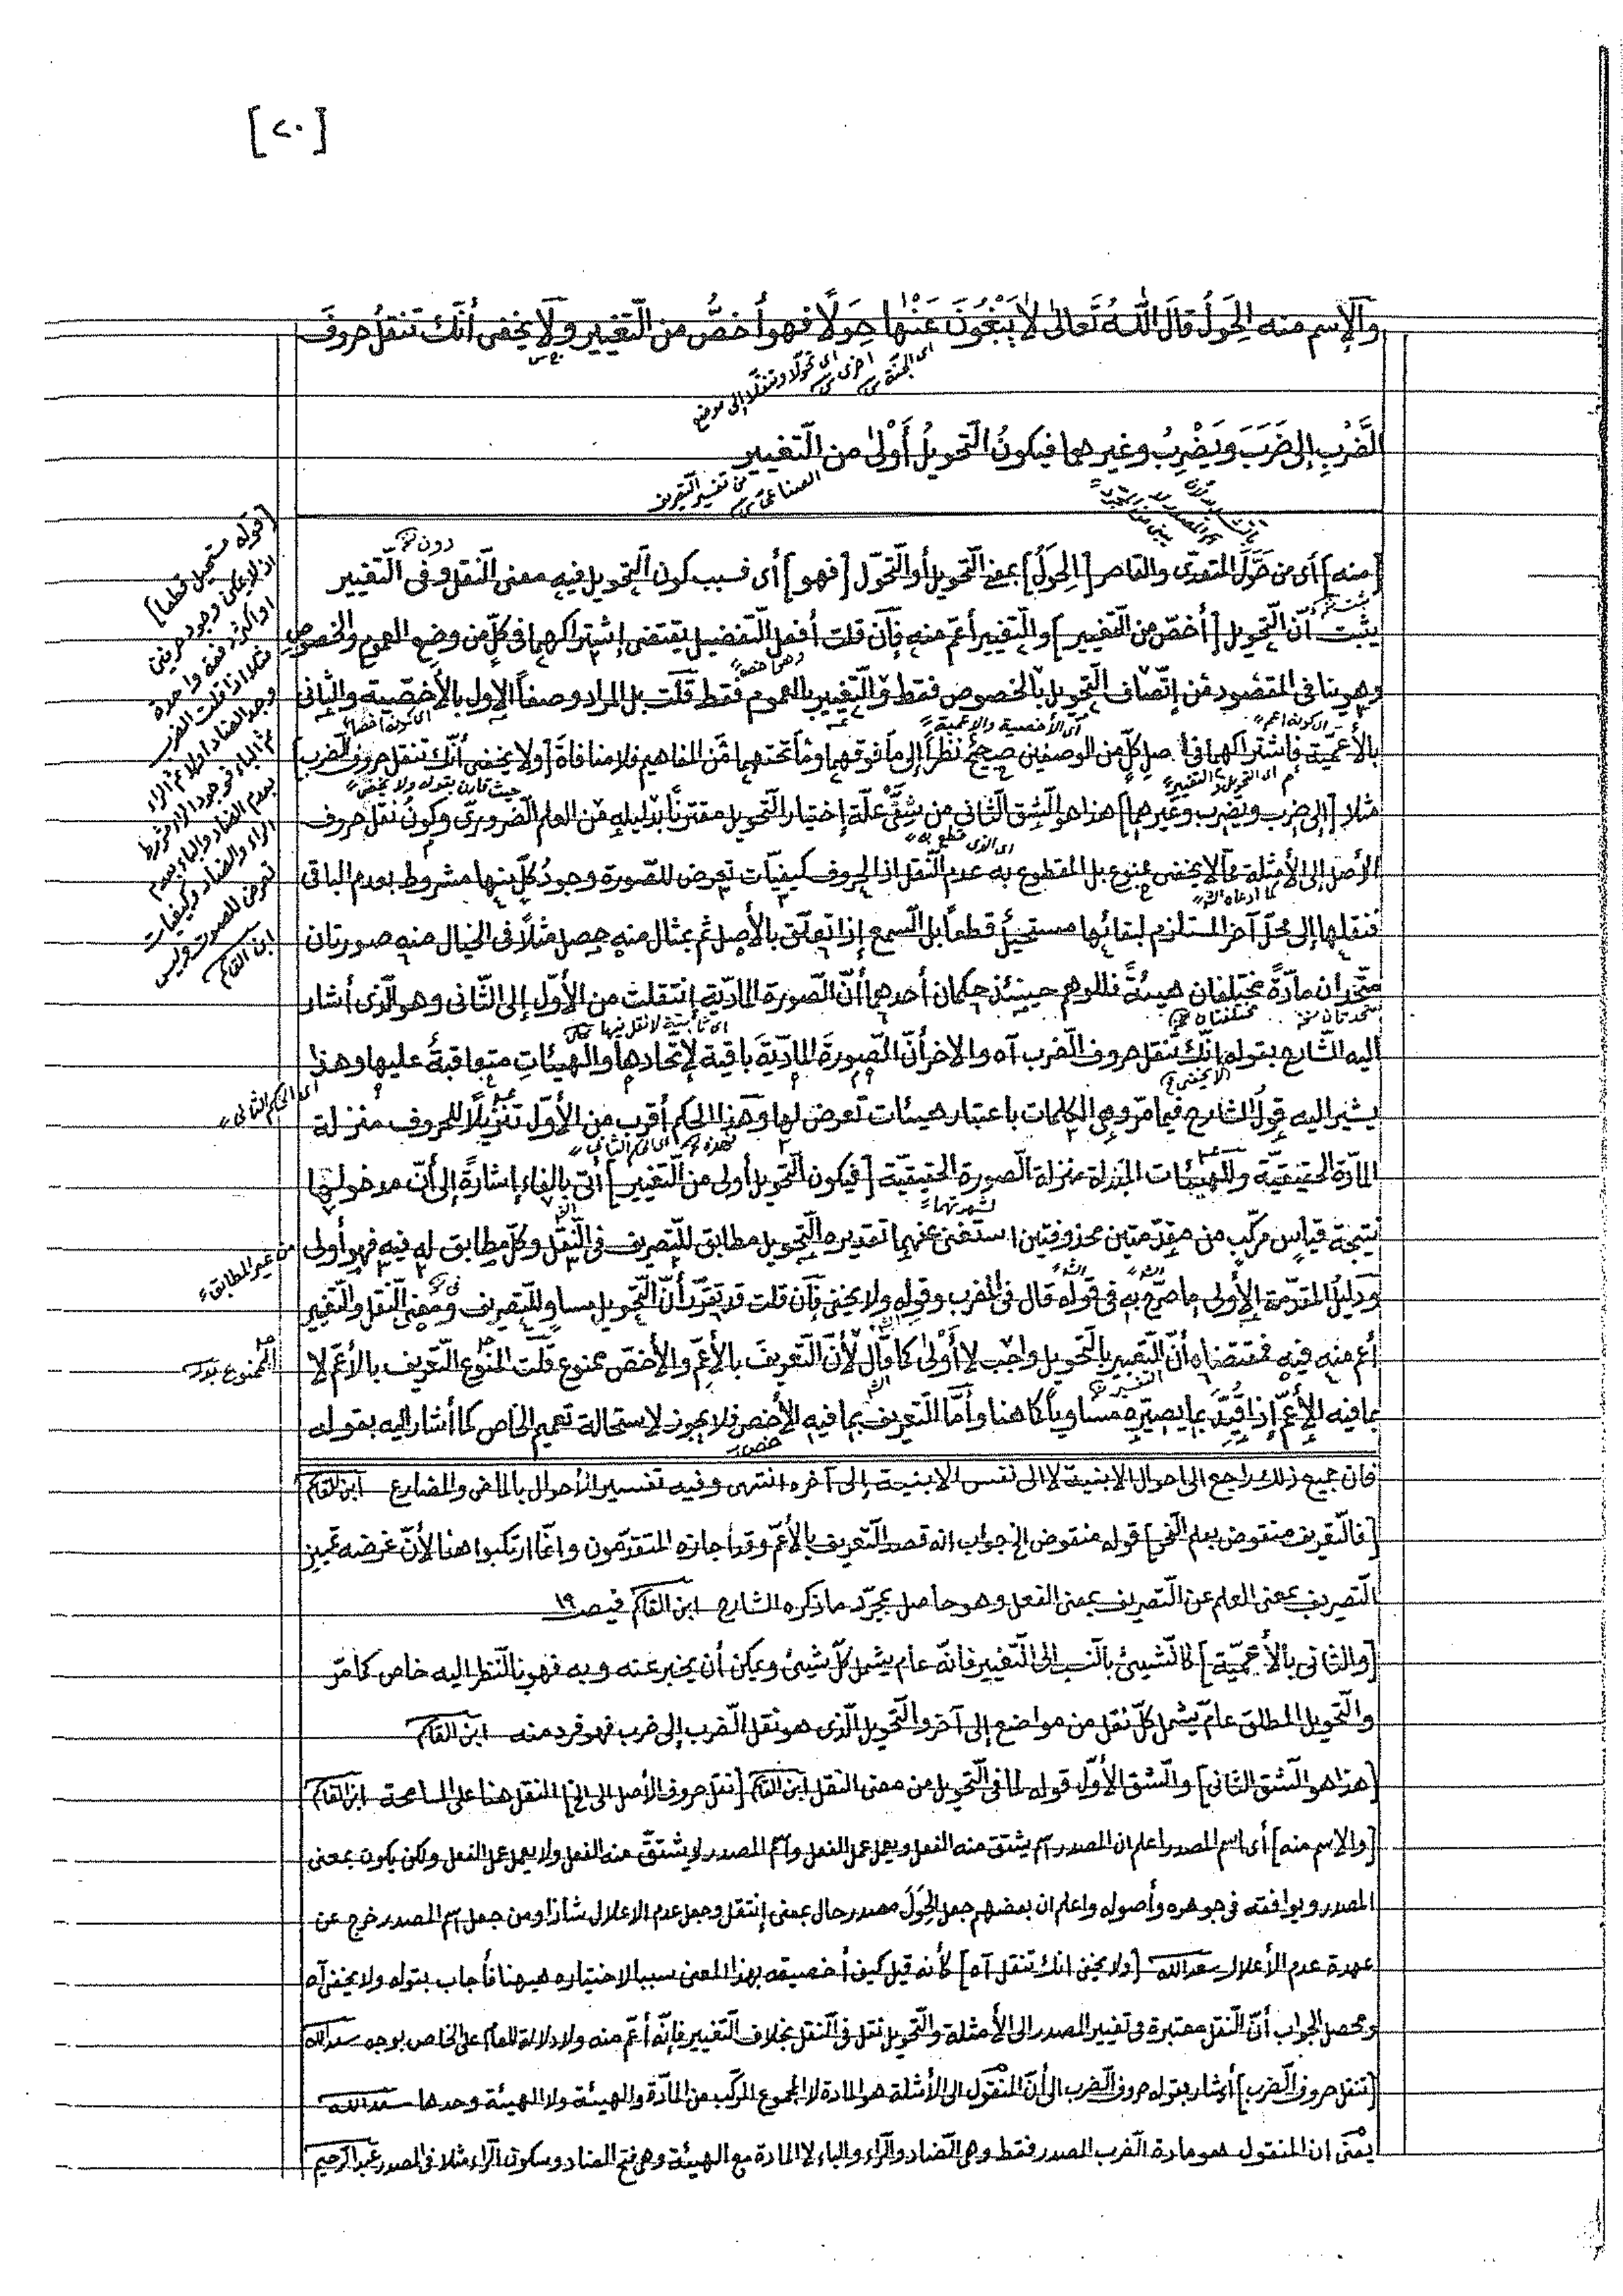 [٢٠]
وَالإِسم منه الحِوَلُ قالَ اللّٰهُ تَعالىٰ لاٰ يَبْغُونَ عَنْهٰا حِوَلًا فهو أَخصُّ من التّغيير ولا يَخفى أنّك تَنقلُ حروفَ
اى الجنّة
اى تحوّلا وتنقّلا إلى موضع اخرى
الضَّرْبِ إلى ضَرَبَ ويَضْرِبُ وغيرهما فيكونُ التّحويلُ أَوْلىٰ من التّغيير
من تفسير التّصريف الصناعى
[منه] أى من حَوَّلَ المتعدّى والقاصر [الحِوَلُ] بمعنى التّحويل أو التّحوّل [فهو] أى فسبب كون التّحويل فيه معنى النّقل وفى التّغيير
دون
يثبت أنّ التّحويل [أخصّ من التّغيير] والتّغيير أعمّ منه فإن قلت أفعل التّفضيل يقتضى إشتراكهما فى كلّ من وضع العموم والخصوص
وهو ينافى المقصود من إتّصاف التّحويل بالخصوص فقط والتّغيير بالعموم فقط قلت بل المراد وصفا الاول بالأخصّية والثانى
اى كونه اعم
أى الأخصية والاعمية
اى كونه اخص
بالأعمّية فاشتراكهما فى أصل كلّ من الوصفين صحيح نظراً إلى ما فوقهما وما تحتهما من المفاهيم فلا منافاة [ولا يخفى أنّك تنقل حروف الضرب]
اى التحويل والتغيير
حيث قارن بقوله ولا يخفى
مثلا [إلى ضرب ويضرب وغيرهما] هذا هو الشّق الثّانى من شقّى علّة إختيار التّحويل مقترناً بدليله من العلم الضّرورىّ وكون نقل حروف
اى الذى قطع به
الأصل إلى الأمثلة ممّا لا يخفى ممنوع بل المقطوع به عدم النّقل اذ الحروف كيفيّات تعرض للصّورة وجودُ كلّ منها مشروط بعدم الباقى
كما ادعاه الش
فنقلها إلى محلّ آخر المستلزم لبقائها مستحيلٌ قطعاً بل السّمع إذا تعلّق بالأصل ثم بمثال منه حصل مثلًا فى الخيال منه صورتان
متّحدتان مادّةً مختلفتان هيئةً فللوهم حينئذ حكمان أحدهما أنّ الصّورة المادّية إنتقلت من الأوّل إلى الثّانى وهو الّذى أشار
متحدتان نسخه
مختلفتان
اى ثابتة لا نقل فيها
اليه الشّارح بقوله إنّك تنقل حروف الضّرب آه والاخر أنّ الصّورة المادّيّة باقية لإتّحادها والهيئاتِ متعاقبةٌ عليها وهذا
اى الحكم الثانى
يشير اليه قول الشارح فيما مرّ وهى الكلمات باعتبار هيئات تعرض لها وهذا الحكم أقرب من الأوّل تنزيلًا للحروف منزلة
اى الحكم الثانى
المادّة الحقيقيّة وللهيئات المنزلة منزلة الصّورة الحقيقيّة [فيكون التّحويل أولى من التّغيير] أتى بالفاء إشارةً إلى أنّ مدخولها
لشهرتهما
نتيجة قياس مركّب من مقدّمتين محذوفتين استغنى عنهما تقديره التّحويل مطابق للتّصريف فى النّقل وكلّ مطابق له فيه فهو أولى
من غير المطابق
ودليل المقدّمة الأولى ما صرّح به فى قوله قال فى المغرب وقوله ولا يخفى فإن قلت قد تقرّر أنّ التّحويل مساوٍ للتّصريف ومعنى النّقل والتّغيير
أعم منه فيه فمقتضاه أنّ التّعبير بالتّحويل واجب لا أَوْلىٰ كما قال لأنّ التّعريف بالأعمّ والأخصّ ممنوع قلت الممنوع التّعريف بالأعمّ لا
بما فيه الأعمّ إذا قيّد بما يصيّره مساوياً كما هنا وأمّا التّعريف بما فيه الأخصّ فلا يجوز لاستحالة تعميم الخاص كما أشار اليه بقوله
[قوله مستحيل قطعا]
اذ لا يمكن وجود حرفين
او اكثر دفعة واحدة
مثلا اذا قلت الضرب
وجد الضاد اولا ثم الراء
ثم الباء فوجود الراء مشروط
بعدم الضاد والباء بعدم
الراء والضاد وكيفيات
تعرض للصوت وليس
ابن القاسم
فان جميع ذلك راجع الى احوال الابنية لا الى نفس الابنية إلى آخره انتهى وفيه تفسير الأحوال بالماضى والمضارع ابن القاسم
[فالتّعريف منقوض بعلم النّحو] قوله منقوض الخ جواب انه قصد التّعريف بالأعمّ وقد أجازه المتقدّمون وإنّما ارتكبوا هنا لأنّ غرضه تمييز
التّصريف بمعنى العلم عن التّصريف بمعنى الفعل وهو حاصل بمجرّد ما ذكره الشارح ابن القاسم فيص ١٩
[والثانى بالأعمّيّة] كالشّيئ بالنسب الى التّغيير فانّه عام يشمل كلّ شيئ ويمكن أن يخبر عنه وبه فهو بالنّظر اليه خاص كما مرّ
والتّحويل المطلق عامّ يشمل كلّ نقل من مواضع إلى آخر والتّحويل الّذى هو نقل الضّرب إلى ضرب فهو فرد منه ابن القاسم
[هذا هو الشّق الثانى] والشّق الأوّل قوله لما فى التّحويل من معنى النقل ابن القاسم [نقل حروف الأصل الى الخ] النقل هنا على المسامحة ابن القاسم
[والاسم منه] أى اسم المصدر اعلم ان المصدر اسم يشتق منه الفعل ويعمل عمل الفعل واسم المصدر لا يشتقّ منه الفعل ولا يعمل عمل الفعل ولكن يكون بمعنى
المصدر ويوافقه فى جوهره وأصوله واعلم ان بعضهم جعل الحِوَلَ مصدر حال بمعنى إنتقل وجعل عدم الاعلال شاذا ومن جعل اسم المصدر خرج عن
عهدة عدم الأعلال سعد الله [ولا يخفى انك تنقل آه] كأنه قيل كيف أخصيته بهذا المعنى سببا لاختياره هيهنا فأجاب بقوله ولا يخفى آه
ومحصل الجواب أنّ النّقل معتبرة فى تغيير المصدر الى الأمثلة والتّحويل نقل فى النّقل بخلاف التّغيير فإنّه أعمّ منه ولا دلالة للعام على الخاص بوجه سعد الله
[تنقل حروف الضّرب] أشار بقوله حروف الضّرب الى أنّ المنقول الى الأمثلة هو المادة لا المجموع المركّب من المادّة والهيئة ولا الهيئة وحدها سعد الله
يعنى ان المنقول هو مادة الضّرب المصدر فقط وهى الضّاد والرّاء والباء لا المادة مع الهيئة وهى فتح الضاد وسكون الرّاء مثلا فى المصدر عبد الرّحيم